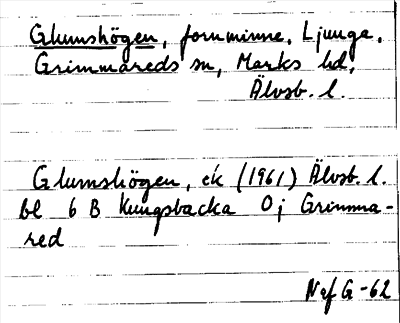 Glumshögen, fornminne, Ljunga,
Grimmareds sn, Marks hd,
Älvsb. l.
Glumshögen, ek (1961) Älvsb. l.
bl 6 B Kungsbacka 0 j Grimma-
red
Nsf G-62